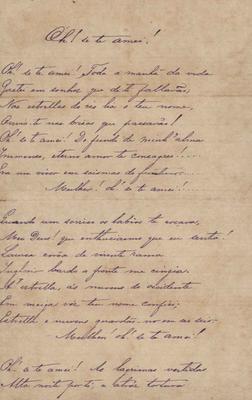 Oh! se te amei!
Oh! se te amei! Toda a manhã da vida
Gastei em sonhos que de ti fallavão,
Nas estrellas do céo lia o teu nome,
Ouvi-te nas brisas que passavão!
Oh! se te amei! Do fundo de minh'alma
Immenso, eterno amor te consagrei....
Era um viver em scismas de futuro....
Mulher! oh! se te amei!...
Quando um sorriso os labios te roçava,
Meu Deus! que enthusiasmo que eu senti!
Laurea corôa de virente rama
bardo a fronte me cingia.
Á estrella, ás nuvens do occidente
Em meiga voz teu nome confiei;
Estrella e nuvens guardão no seio
Mulher! oh! se te amei!
Oh! se te amei! As lagrimas vertidas
Alta noite por ti; a tortura